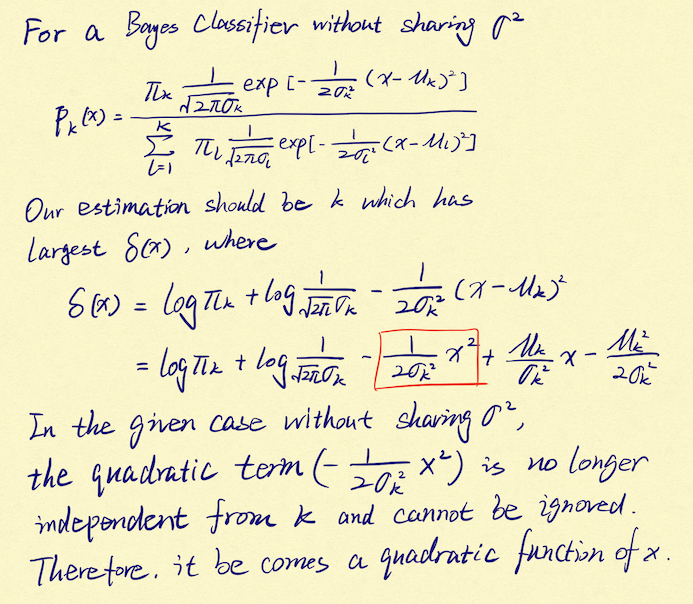 For a Bayes Classifier without sharing σ²
Pₖ(x) = πₖ 1/(√2π σₖ) exp [- 1/(2σₖ²) (x-μₖ)²] / ∑_{l=1}^{K} πₗ 1/(√2π σₗ) exp[- 1/(2σₗ²) (x-μₗ)²]
Our estimation should be k which has
largest δ(x), where
δ(x) = log πₖ + log 1/(√2π σₖ) - 1/(2σₖ²) (x-μₖ)²
= log πₖ + log 1/(√2π σₖ) - 1/(2σₖ²) x² + μₖ/σₖ² x - μₖ²/(2σₖ²)
In the given case without sharing σ²,
the quadratic term (- 1/(2σₖ²) x²) is no longer
independent from k and cannot be ignored.
Therefore, it becomes a quadratic function of x.